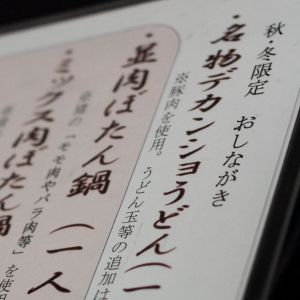 秋・冬限定 おしながき
・名物デカンショうどん(一
※豚肉を使用。うどん玉等の追加は
・並肉ぼたん鍋 (一人
赤身の「モモ肉やバラ肉等」を使
・ミックス肉ぼたん鍋